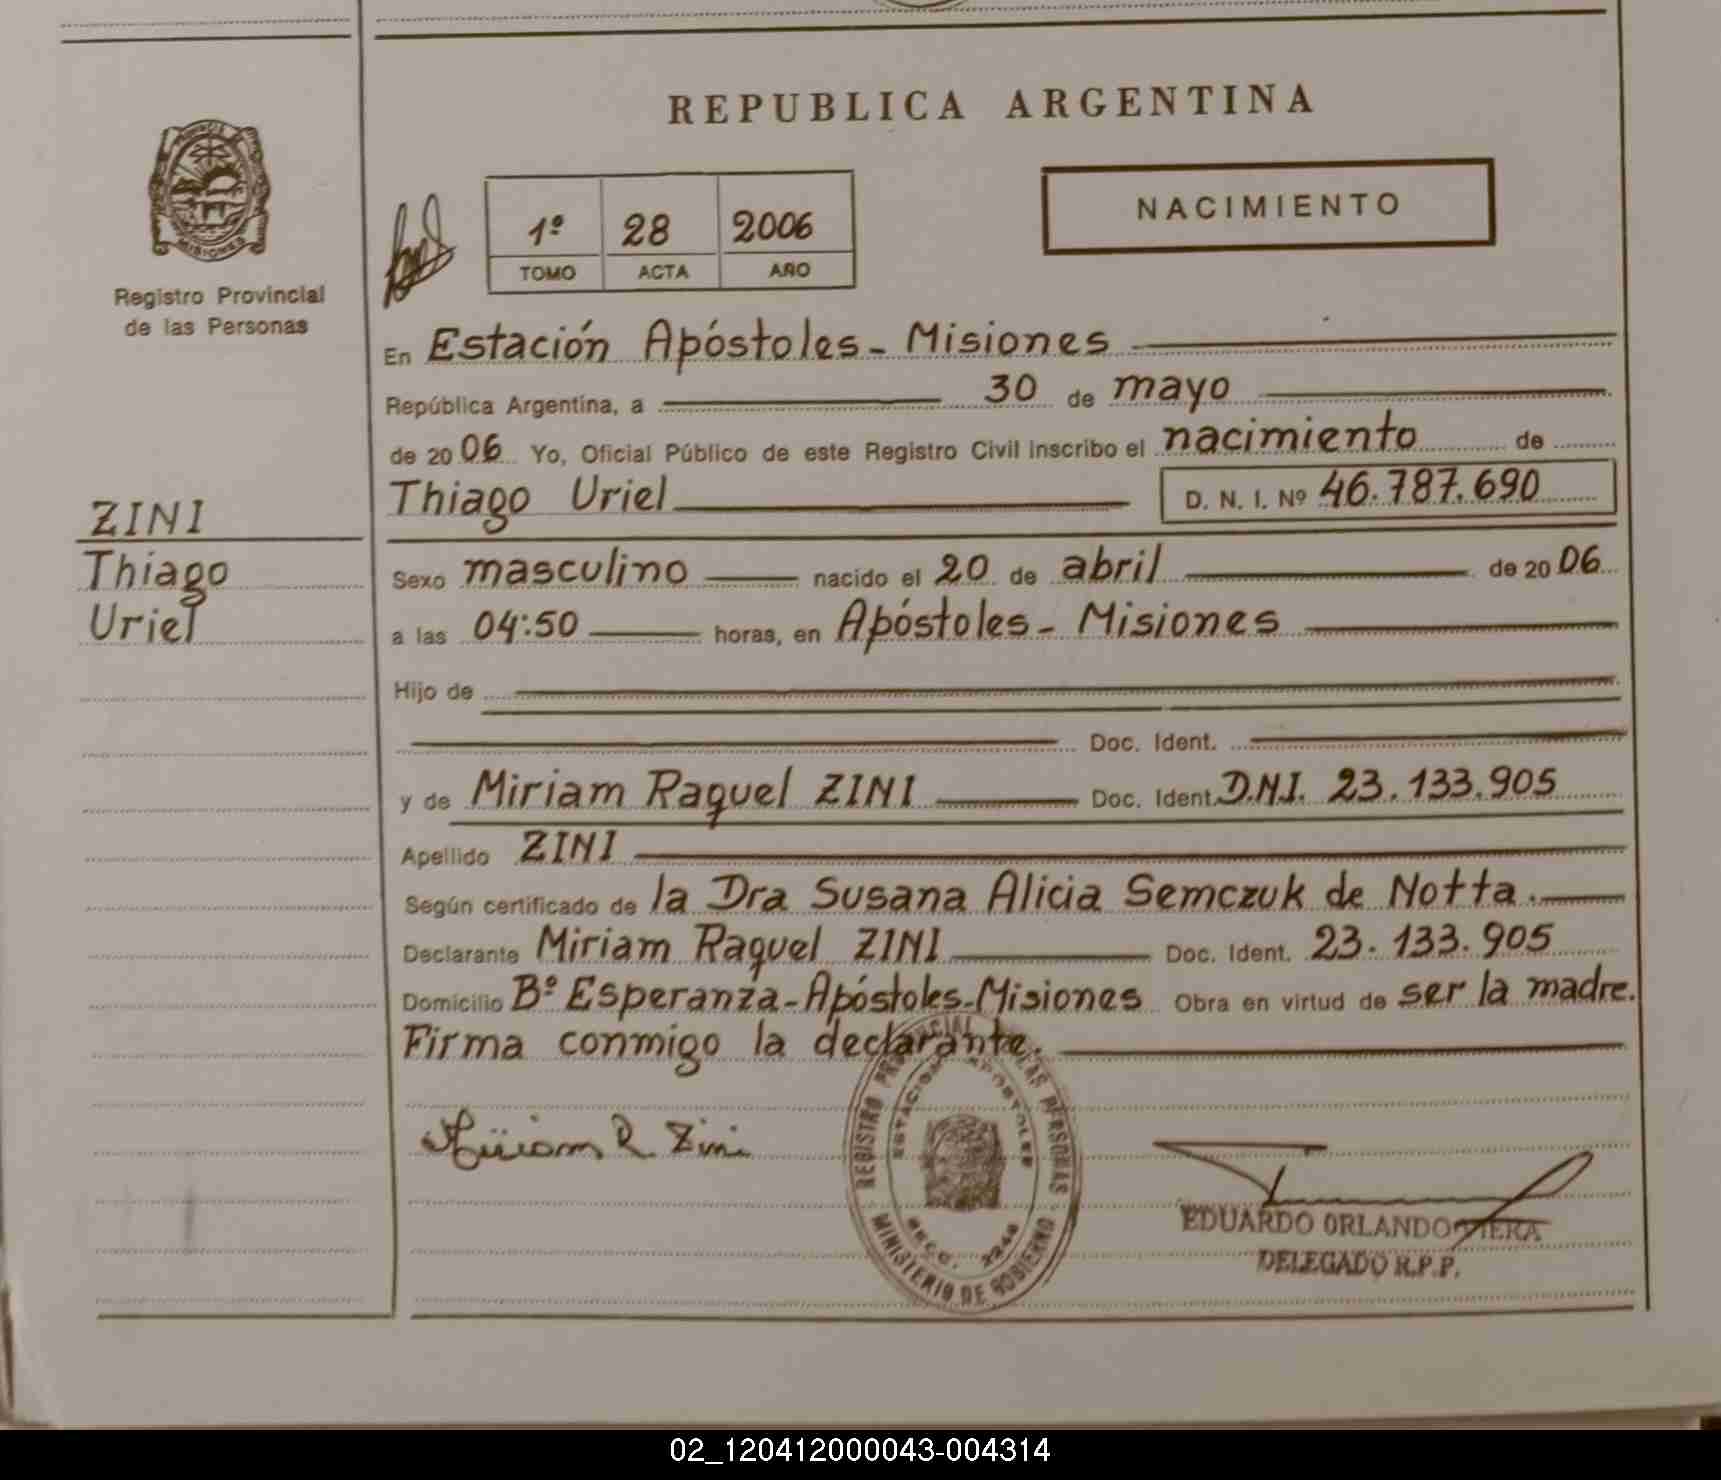 REPUBLICA ARGENTINA
PROVINCIA DE MISIONES
Registro Provincial
de las Personas
1º 28 2006
TOMO ACTA AÑO
NACIMIENTO
En Estación Apóstoles - Misiones
República Argentina, a 30 de mayo
de 2006 Yo, Oficial Público de este Registro Civil inscribo el nacimiento de
Thiago Uriel D. N. I. Nº 46.787.690
ZINI
Thiago
Uriel
Sexo masculino nacido el 20 de abril de 2006
a las 04:50 horas, en Apóstoles - Misiones
Hijo de
Doc. Ident.
y de Miriam Raquel ZINI Doc. Ident. D.N.I. 23.133.905
Apellido ZINI
Según certificado de la Dra Susana Alicia Semczuk de Notta.
Declarante Miriam Raquel ZINI Doc. Ident. 23.133.905
Domicilio Bº Esperanza - Apóstoles - Misiones Obra en virtud de ser la madre.
Firma conmigo la declarante.
Miriam R. Zini
REGISTRO PROVINCIAL DE LAS PERSONAS
ESTACION APOSTOLES
MINISTERIO DE GOBIERNO
EDUARDO ORLANDO
DELEGADO R.P.P.
02_120412000043-004314